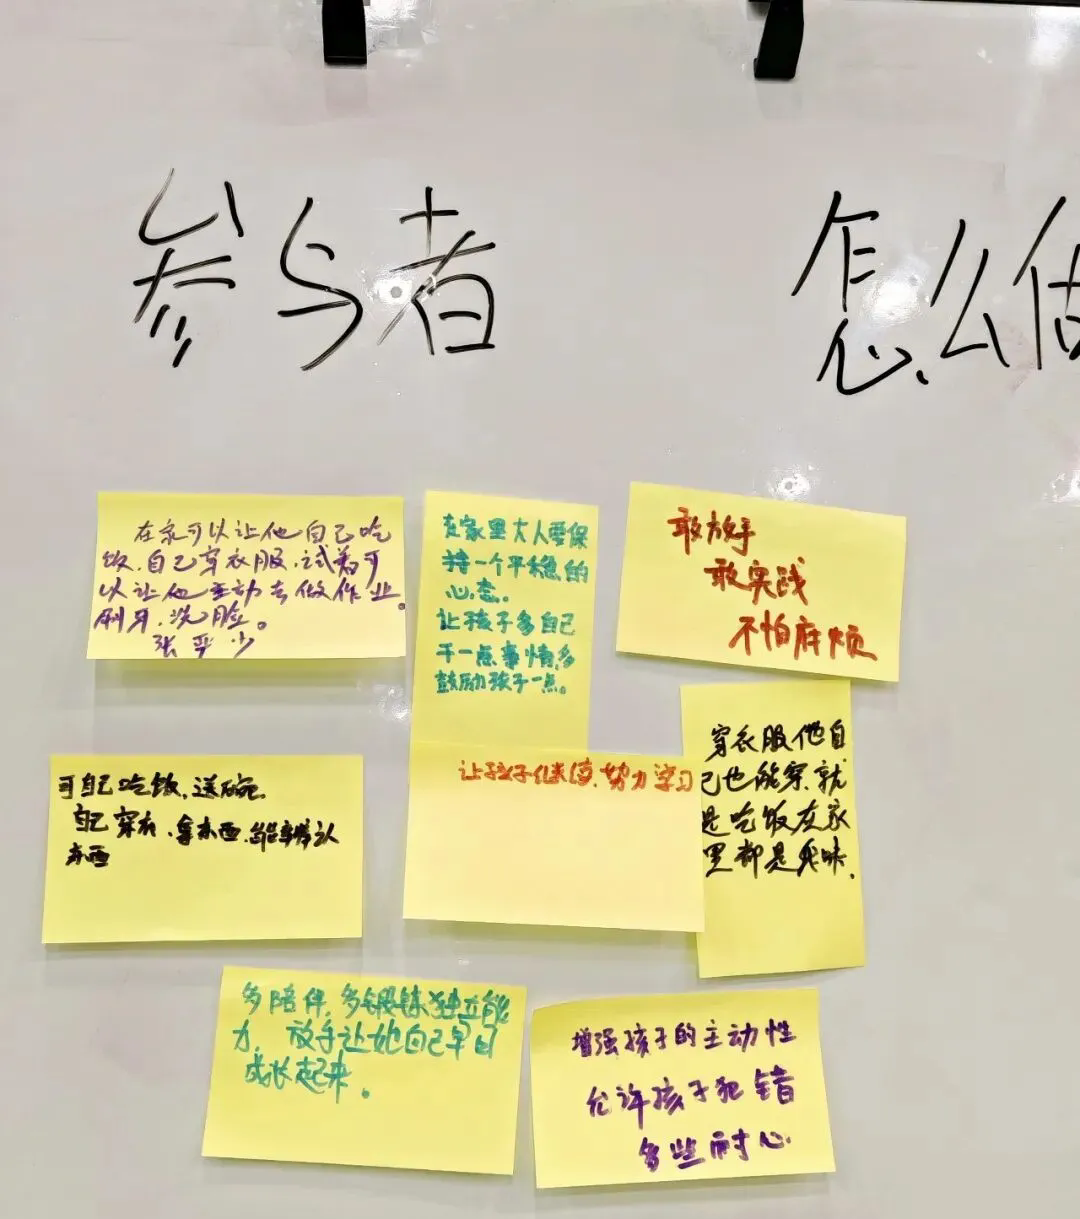 参与者
怎么做
在家可以让他自己吃
饭.自己穿衣服.试着可
以让他主动去做作业。
刷牙.洗脸。
张平少
在家里大人要保
持一个平稳的
心态。
让孩子多自己
干一点事情,多
鼓励孩子一点。
敢放手
敢实践
不怕麻烦
可自己吃饭,送碗.
自己穿衣.拿东西.能
东西
让孩子继续.努力学习
穿衣服他自
己也能穿.就
是吃饭在家
里都是
多陪伴,多锻炼独立能
力,放手让她自己早日
成长起来。
增强孩子的主动性
允许孩子犯错
多些耐心.